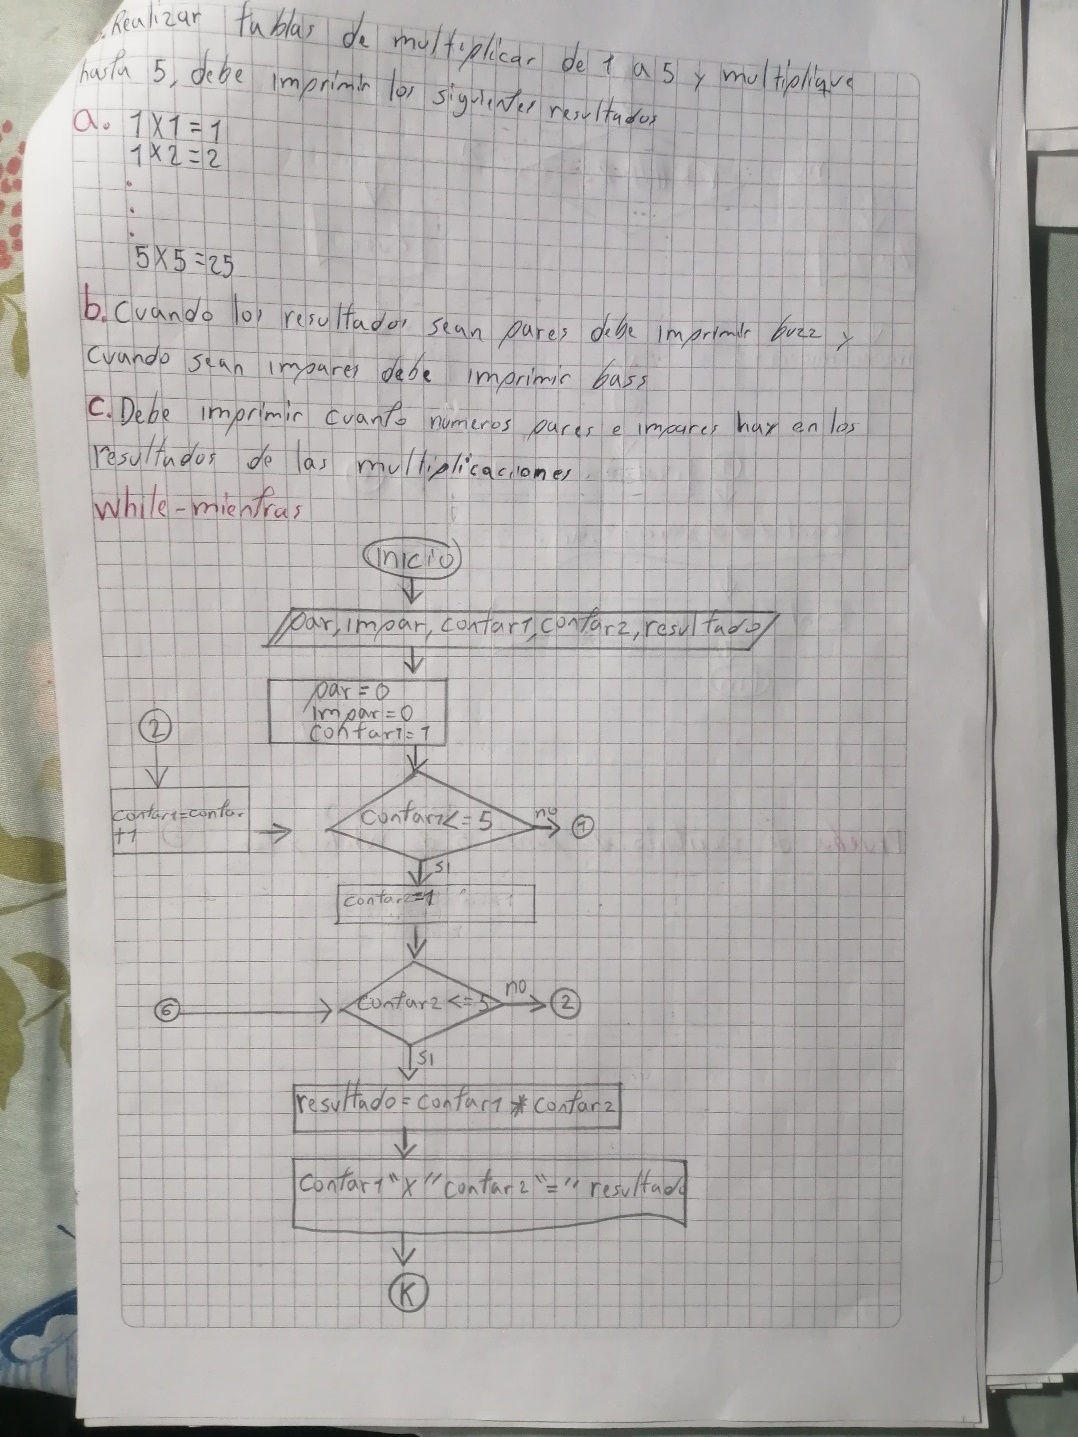 Realizar tablas de multiplicar de 1 a 5 y multiplique
hasta 5, debe imprimir los siguientes resultados
a. 1X1=1
1X2=2
.
.
.
5X5=25
b. Cuando los resultados sean pares debe imprimir buzz y
cuando sean impares debe imprimir bass
c. Debe imprimir cuanto números pares e impares hay en los
resultados de las multiplicaciones.
While-mientras
Inicio
par, impar, contar1, contar2, resultado
par=0
impar=0
contar1=1
2
contar1=contar
+1
contar1<=5
no
si
contar2=1
6
contar2<=5
no
2
si
resultado=contar1*contar2
contar1"X"contar2"="resultado
K